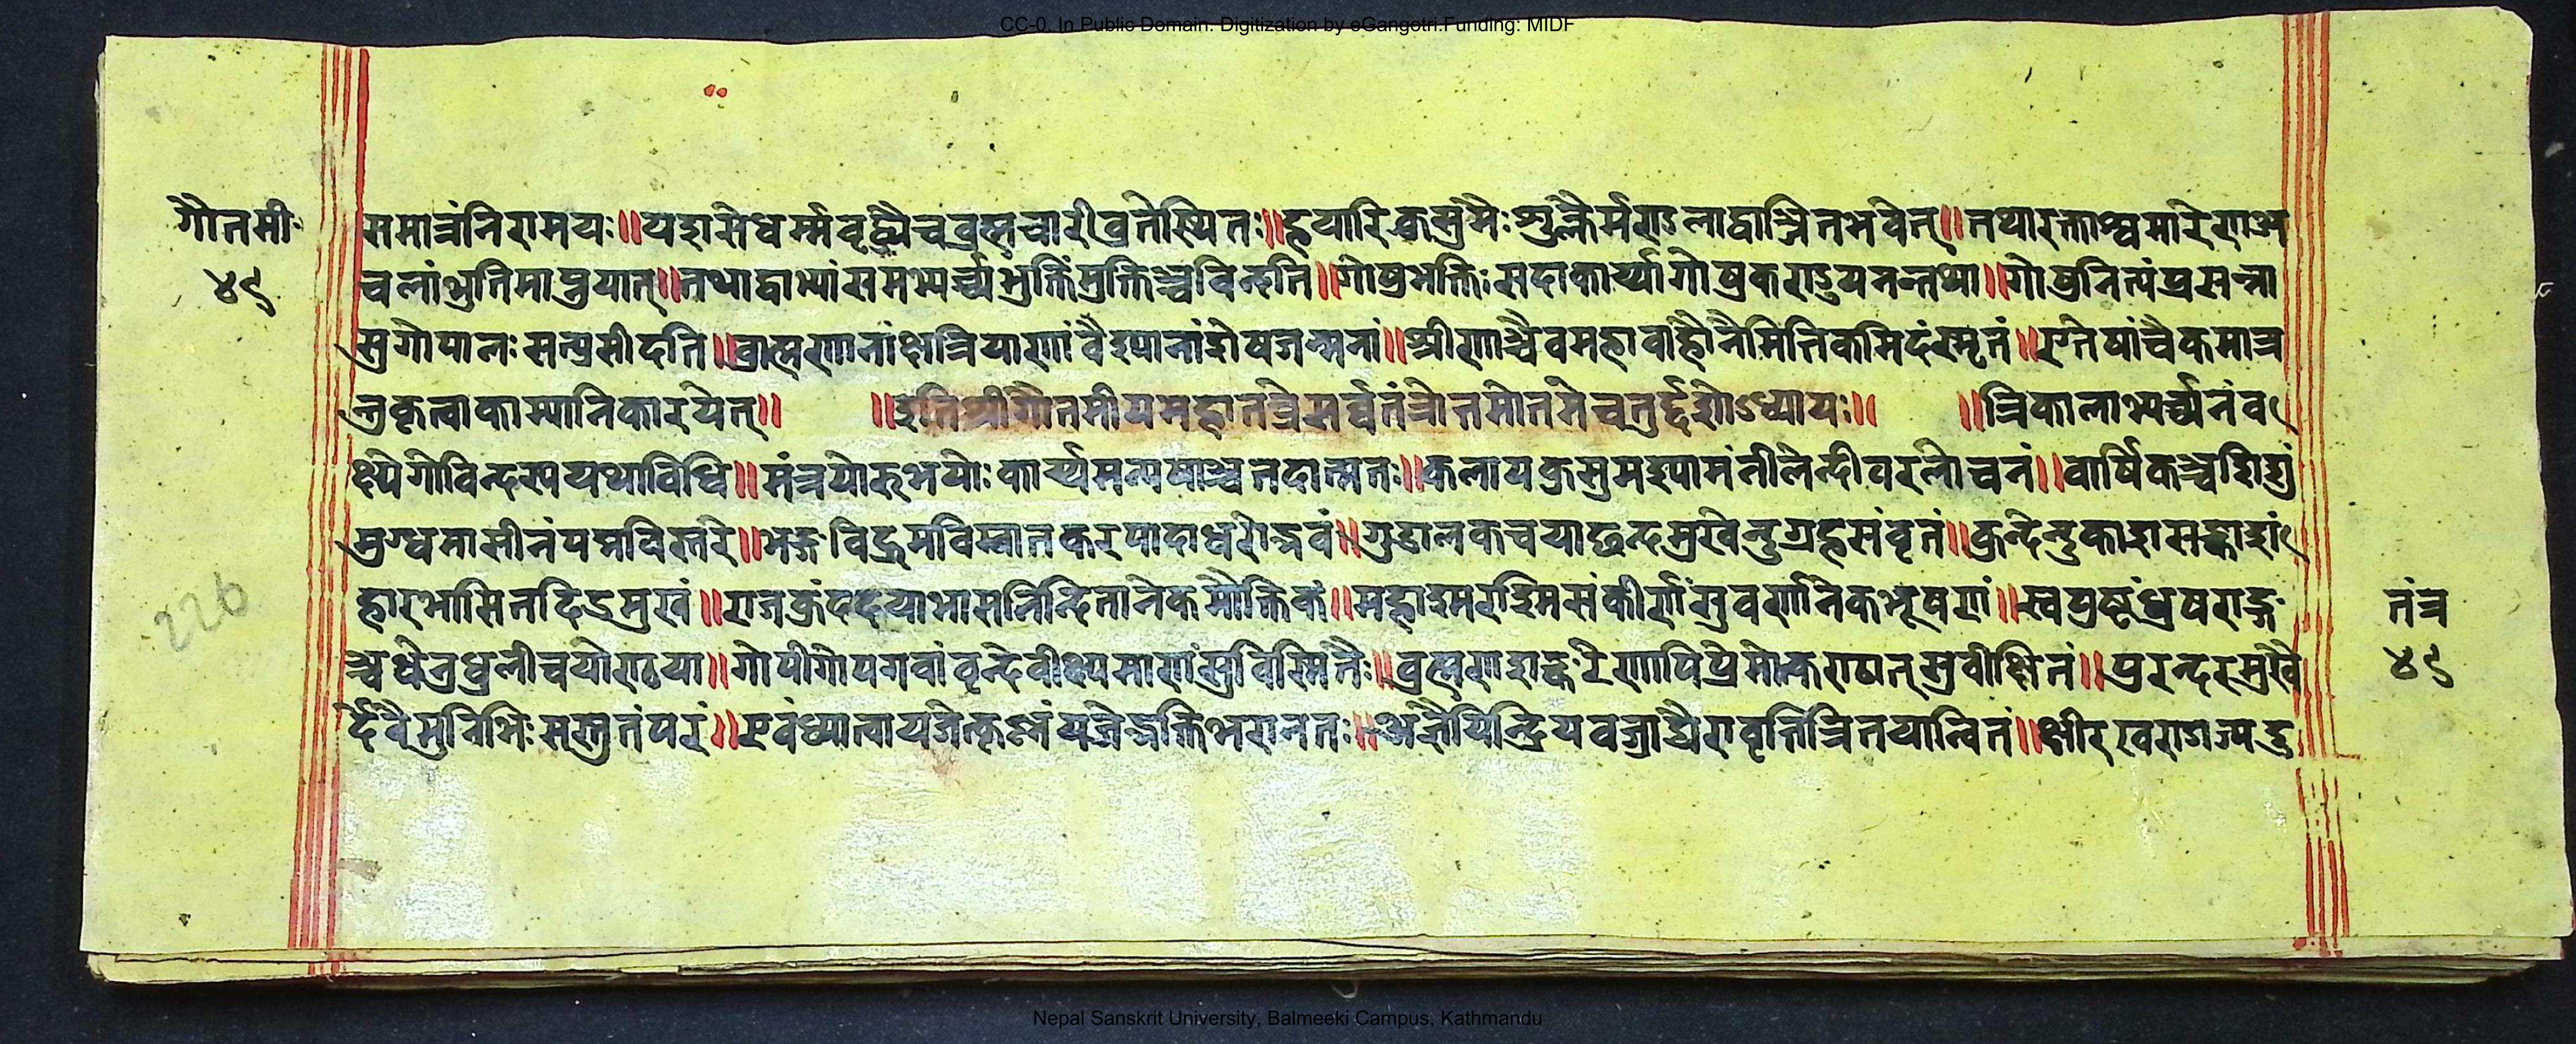 CC-0. In Public Domain. Digitization by eGangotri.Funding: MIDF
गौतमी
४९
समात्रंनिरामयः॥यद्दासेधर्म्मवृद्ध्यैचब्रह्मचारीव्रतेस्थितः॥हयारिकुसुमैःशुक्लैर्मण्डलाद्वाञ्छितभवेत्॥तथारक्ताश्वमारेणअ
चलांभुतिमाप्नुयात्॥तथाद्वाभ्यांसमभ्यर्च्च्यभुक्तिंमुक्तिञ्चविन्दति॥गोषुभक्तिःसदाकार्य्यागोषुकण्डुयनन्तथा॥गोषुनित्यंप्रसन्ना
सुगोपालःसन्प्रसीदति॥ब्राह्मणानांक्षत्रियाणांवैश्यानांशेषजन्मनां॥स्त्रीणाञ्चैवमहावाहोनैमित्तिकमिदंस्मृतं॥एतेषांचैकमात्र
न्तुकृत्वाकाम्यानिकारयेत्॥ ॥इतिश्रीगौतमीयमहातन्त्रेसर्व्वतंत्रोत्तमोत्तमेचतुर्द्दशोऽध्यायः॥ ॥त्रिकालाभ्यर्च्च्यनंव
क्ष्येगोविन्दस्ययथाविधि॥मंत्रयोरुभयोःकार्य्यमन्येषाञ्चतदात्मतः॥कलायकुसुमश्यामंनीलेन्दीवरलोचनं॥वार्षिकञ्चशिशुं
मुग्धमासीनंपद्मविस्तरे॥भङ्गविद्रुमविम्बातकरपादाधरोज्ज्वं॥गुडालकचयाछन्दमुखेन्दुग्रहसंवृतं॥कुन्देन्दुकाशसङ्काशं
हारभासितदिङ्मुखं॥राजकुंददत्याभासनिन्दितानेकमौक्तिकं॥महाश्मरश्मिसंकीर्णंसुवर्णानेकभूषणं॥स्वपुष्टंधूषराङ्ग
ञ्चधेनुधुलीचयोराढया॥गोपीगोपगवांवृन्देवीक्ष्यमाणंसुविस्मितैः॥ब्रह्मणाशङ्करेणापिप्रेमोत्कण्ठातसुवीक्षितं॥पुरन्दरमुखै
र्देवैर्मुनिभिःसस्तुतंपरं॥एवंध्यात्वायजेत्कृष्णंयजेद्भक्तिभरानतः॥अङ्गैयिन्द्रियवज्राद्यैरावृत्तित्रितयान्वितं॥क्षीरखण्डाज्यदु
तंत्र
४९
226
Nepal Sanskrit University, Balmeeki Campus, Kathmandu